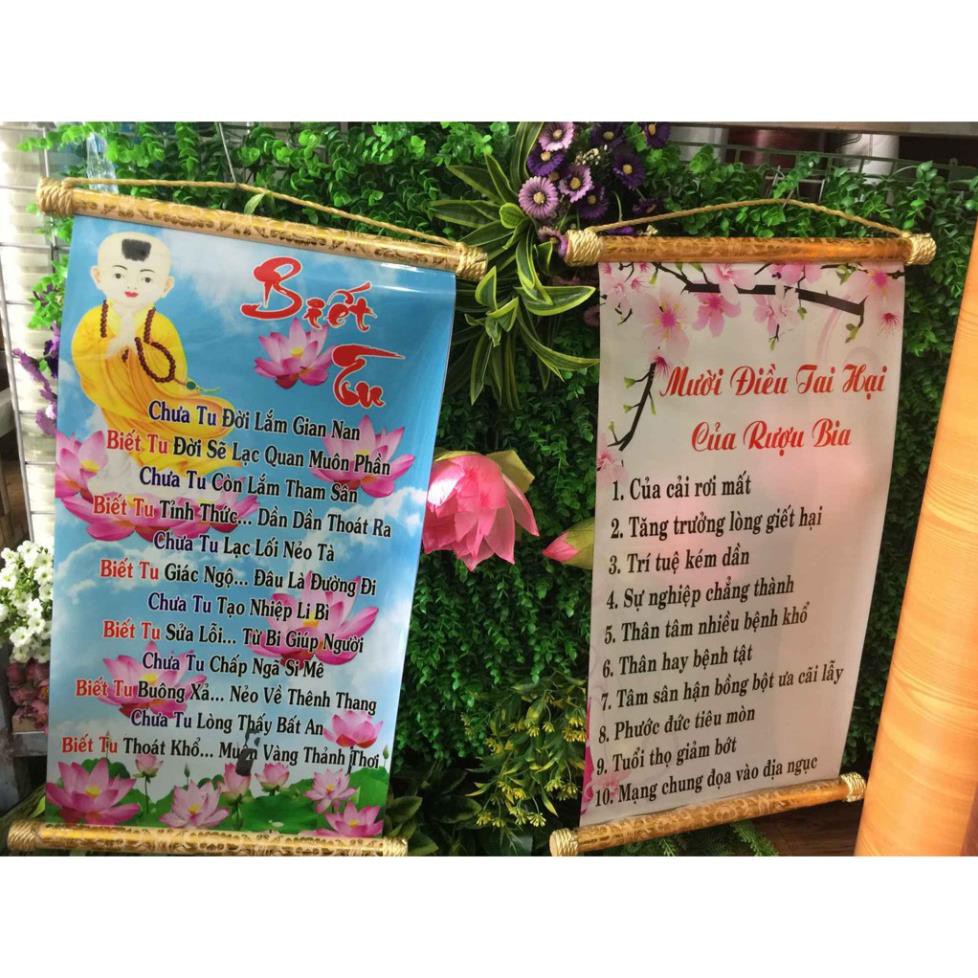 Biết
Tu
Chưa Tu Đời Lắm Gian Nan
Biết Tu Đời Sẽ Lạc Quan Muôn Phần
Chưa Tu Còn Lắm Tham Sân
Biết Tu Tỉnh Thức... Dần Dần Thoát Ra
Chưa Tu Lạc Lối Nẻo Tà
Biết Tu Giác Ngộ... Đâu Là Đường Đi
Chưa Tu Tạo Nhiệp Li Bì
Biết Tu Sửa Lỗi... Từ Bi Giúp Người
Chưa Tu Chấp Ngã Si Mê
Biết Tu Buông Xả... Nẻo Về Thênh Thang
Chưa Tu Lòng Thấy Bất An
Biết Tu Thoát Khổ... Muôn Vàng Thảnh Thơi
Mười Điều Tai Hại
Của Rượu Bia
1. Của cải rơi mất
2. Tăng trưởng lòng giết hại
3. Trí tuệ kém dần
4. Sự nghiệp chẳng thành
5. Thân tâm nhiều bệnh khổ
6. Thân hay bệnh tật
7. Tâm sân hận bồng bột ưa cãi lẫy
8. Phước đức tiêu mòn
9. Tuổi thọ giảm bớt
10. Mạng chung dọa vào địa ngục